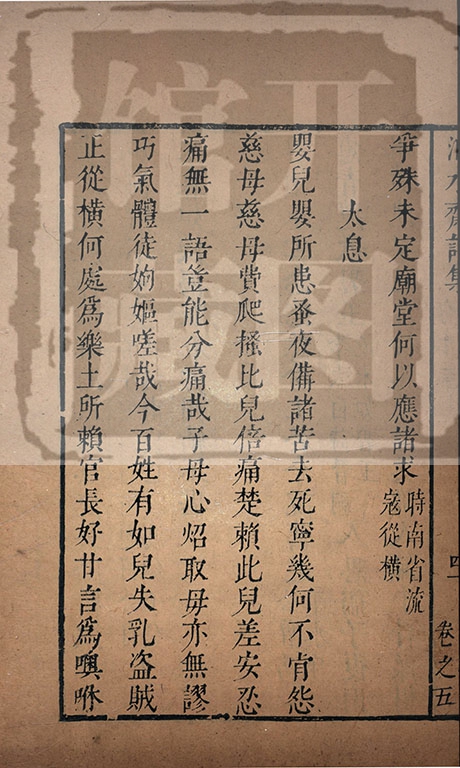 爭殊未定廟堂何以應諸求時南省流寇從橫
太息
嬰兒嬰所患蚤夜備諸苦去死寧幾何不肯怨
慈母慈母費爬搔比兒倍痛楚賴此兒差安忍
痛無一語豈能分痛哉子母心炤取毋亦無謬
巧氣體徒姁嫗嗟哉今百姓有如兒失乳盜賊
正從橫何處爲樂土所賴官長好甘言爲噢咻
齋詩集
卷之五